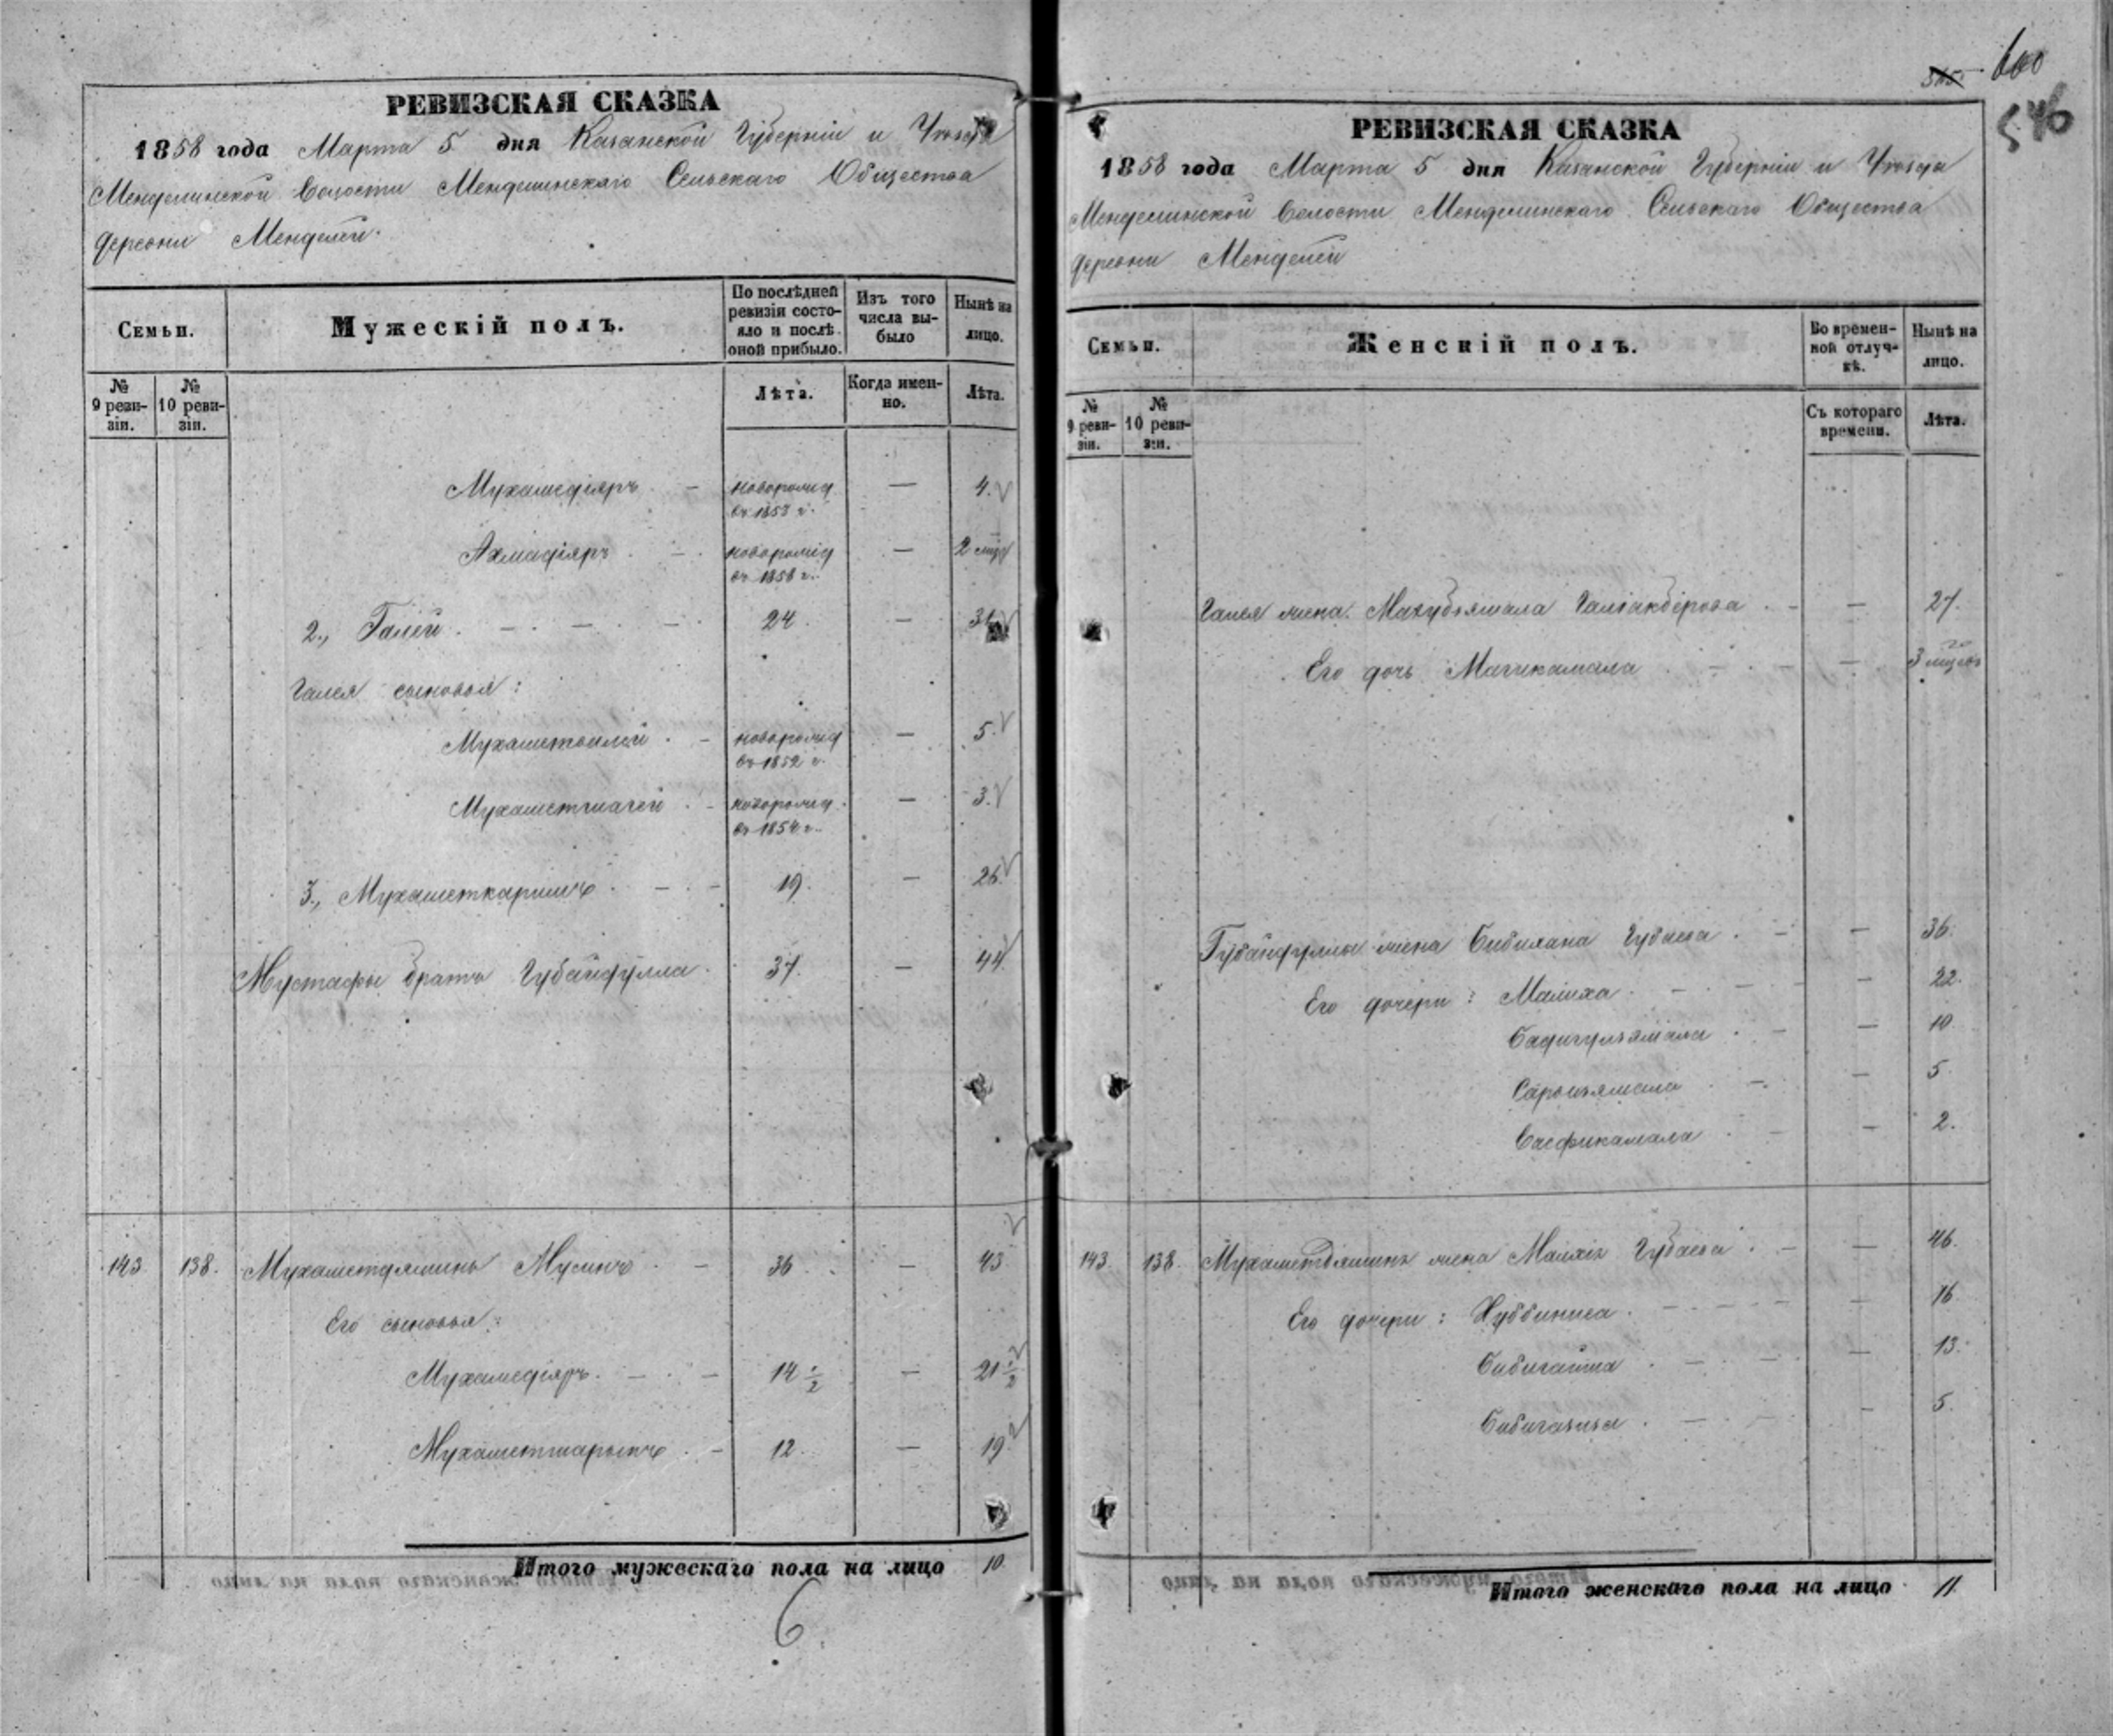 РЕВИЗСКАЯ СКАЗКА
1858 года Марта 5 дня Казанской Губерніи и Уѣзда
Менделинской Волости Менделинскаго Сельскаго Общества
деревни Менделей.
Семьи.
Мужескій полъ.
По послѣдней ревизіи состояло и послѣ оной прибыло.
Изъ того числа выбыло
Нынѣ на лицо.
№ 9 ревизіи.
№ 10 ревизіи.
Лѣта.
Когда именно.
Лѣта.
Мухамедіяръ — новорожд въ 1853 г. — 4.
Ахмадіяръ — новорожд въ 1858 г. — 2
2., Галей — 24 — 31
Галея сыновья:
— новорожд въ 1852 г. — 5.
— новорожд въ 1854 г. — 3.
3., Мухаметкаримъ — 19. — 26.
Мустафы братъ Губайдулла. 37. — 44.
143 138. Мухаметдяминъ Мусинъ — 36 — 43.
Его сыновья:
Мухамедіяръ. — 14 1/2 — 21 1/2
Мухаметшарыпъ — 12. — 19
Итого мужескаго пола на лицо 10.
6
600
546
РЕВИЗСКАЯ СКАЗКА
1858 года Марта 5 дня Казанской Губерніи и Уѣзда
Менделинской Волости Менделинскаго Сельскаго Общества
деревни Менделей
Семьи.
Женскій полъ.
Во временной отлучкѣ.
Нынѣ на лицо.
№ 9 ревизіи.
№ 10 ревизіи.
Съ котораго времени.
Лѣта.
Галея жена Махубзямала Галіакберова — 27.
Его дочь Магикамала — 3
Губайдуллы жена Бибихана Губаева — 36.
Его дочери: Малиха — 22.
Бадигулзямала — 10
— 5
— 2.
143. 138. Мухаметдямина жена Губаева — 46.
Его дочери: Хуббиниса — 16
Бибигайша — 13.
Бибигазиза — 5.
Итого женскаго пола на лицо 11.